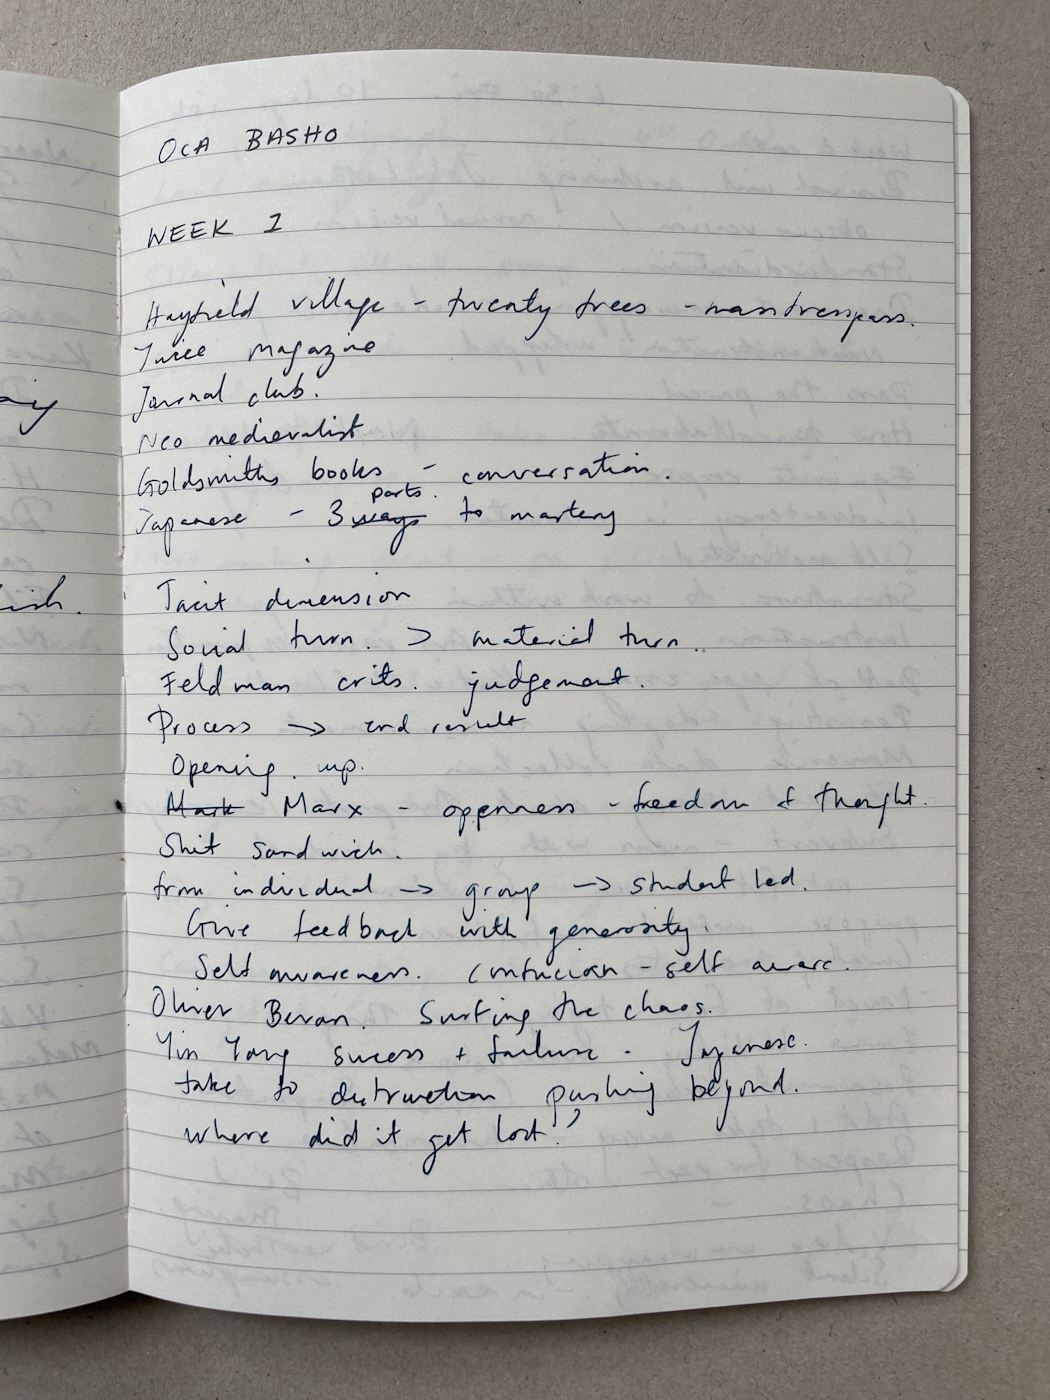 OCA BASHO
WEEK 1
Hayfield village - twenty trees - mass tresspass.
Twice magazine
Journal club.
Neo medievalist
Goldsmiths books - conversation.
parts.
Japanese - 3 ways to mastery
Tacit dimension
Social turn. > material turn.
Feldman crits. judgement.
Process → end result
Opening. up.
Mark Marx - openness - freedom of thought.
Shit sandwich.
from individual → group → student led.
Give feedback with generosity.
Self awareness. Confucian - self aware.
Oliver Bevan. Surfing the chaos.
Yin Yang sucess + failure. Japanese.
take to distruction pushing beyond.
where did it get lost!'
ay
ish.